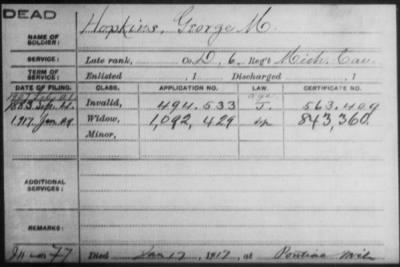 DEAD
NAME OF SOLDIER: Hopkins, George M.
SERVICE: Late rank, Co. D, 6 Reg't Mich. Cav.
TERM OF SERVICE: Enlisted , 1 Discharged , 1
DATE OF FILING. CLASS. APPLICATION NO. LAW. CERTIFICATE NO.
age
1883 Sep. Invalid, 494.533 J. 563.409
1917. Jan. 29 Widow, 1,092,429 843,360.
Minor,
ADDITIONAL SERVICES:
REMARKS:
Died Jan 17, 1917, at Pontiac Mich